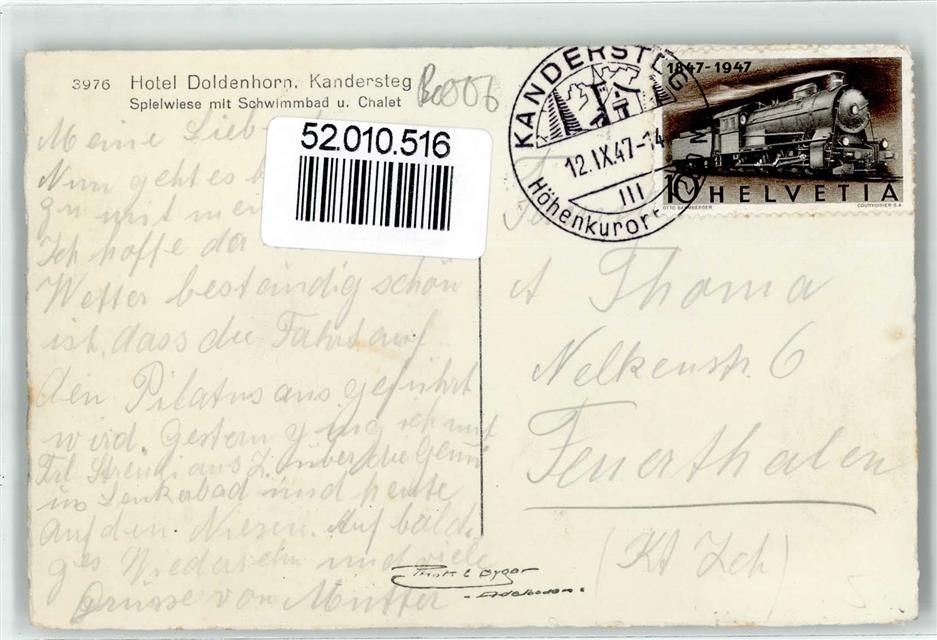 3976 Hotel Doldenhorn, Kandersteg
Spielwiese mit Schwimmbad u. Chalet
52.010.516
KANDERSTEG
12.IX.47-14
III
Höhenkurort
1847-1947
10 HELVETIA
OTTO BAUMBERGER COURVOISIER S.A.
Meine Lieb
Nun geht es
zu mit mei
Ich hoffe da
Wetter beständig schön
ist, dass die Fahrt auf
den Pilatus ausgeführt
wird. Gestern ging ich mit
Frl. aus Z. über die Gemmi
ins Leukerbad und heute
auf den Niesen. Auf baldi-
ges Wiedersehn und viele
Grüsse von Mutter
A Thoma
Nelkenstr. 6
Feuerthalen
(Kt Zch)
Adelboden